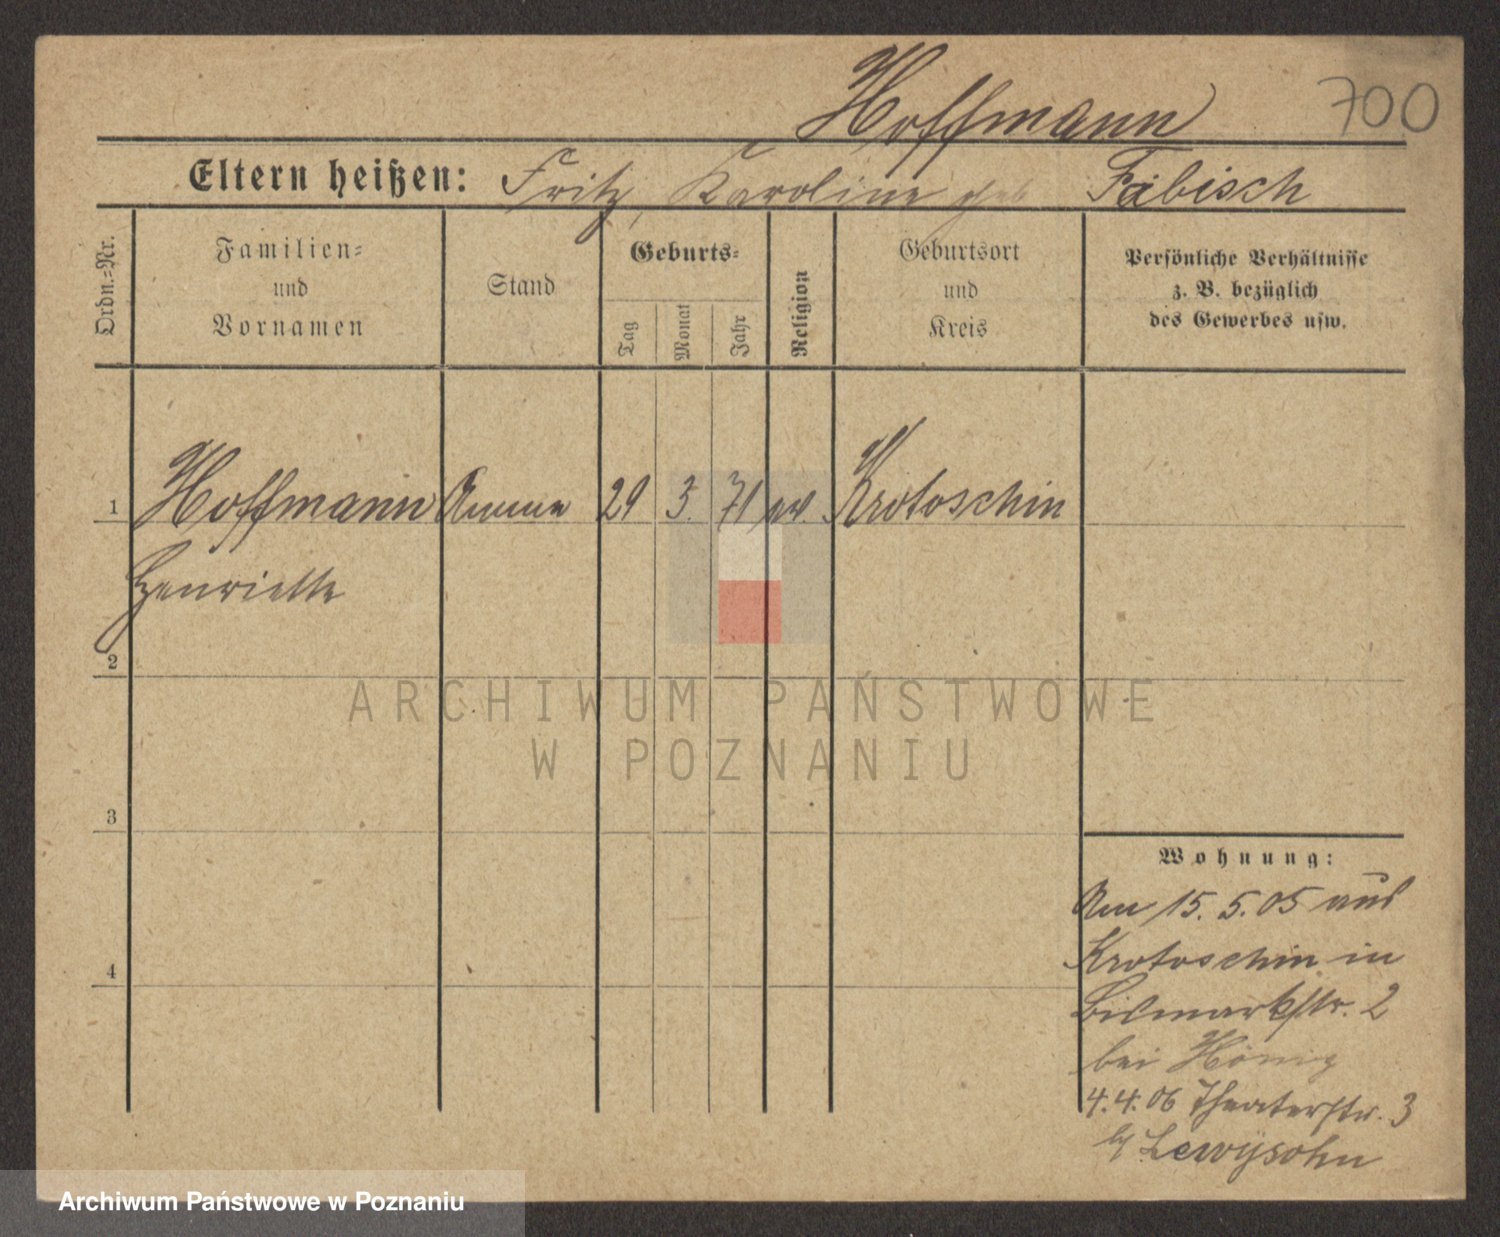 Hoffmann
700
Eltern heißen: Fritz, Karoline geb Fäbisch
Ordn.-Nr.
Familien-
und
Vornamen
Stand
Geburts-
Tag
Monat
Jahr
Religion
Geburtsort
und
Kreis
Persönliche Verhältnisse
z. B. bezüglich
des Gewerbes usw.
1 Hoffmann Amme 29 3. 71 ev. Krotoschin
Henriette
2
3
4
Wohnung:
Am 15. 5. 05 aus
Krotoschin in
Bismarkstr. 2
bei Hönig
4. 4. 06 Theaterstr. 3
b/ Lewysohn
ARCHIWUM PAŃSTWOWE
W POZNANIU
Archiwum Państwowe w Poznaniu